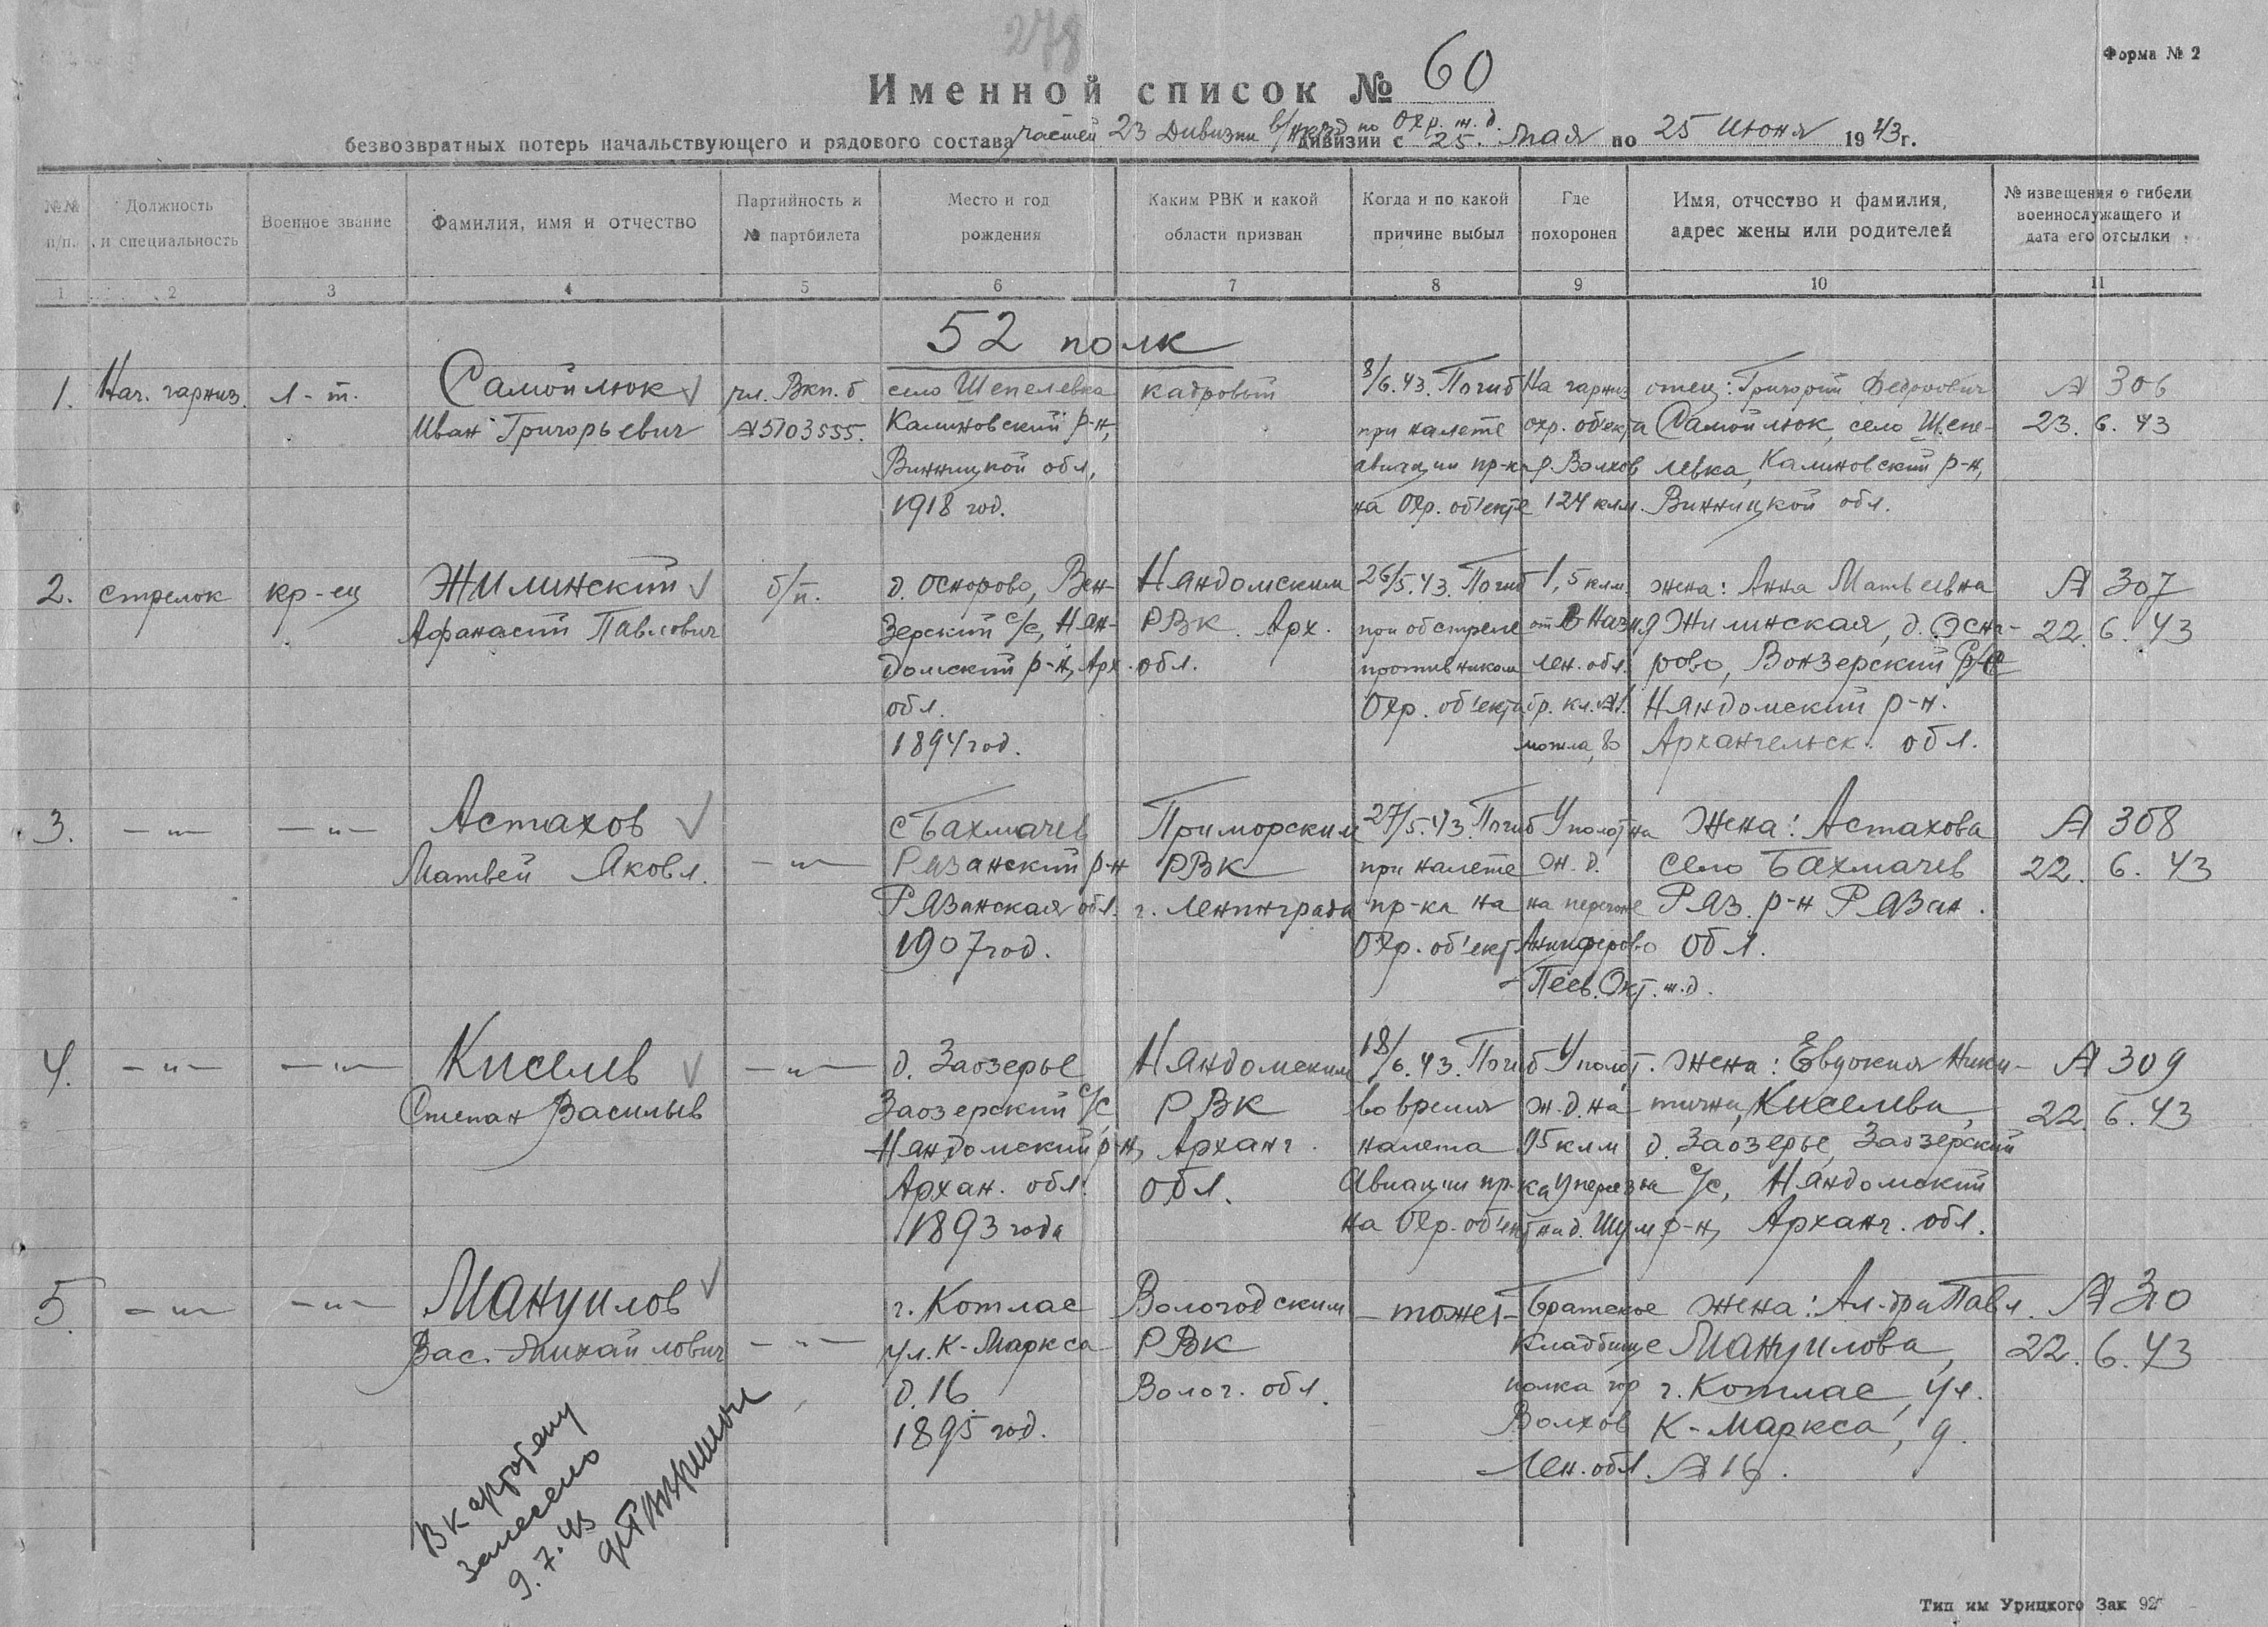 278
Форма № 2
Именной список № 60
безвозвратных потерь начальствующего и рядового состава частей 23 Дивизии в/нквд по Охр. ж.д. дивизии с 25. Мая по 25 Июня 1943 г.
№№ п/п.
Должность и специальность
Военное звание
Фамилия, имя и отчество
Партийность и № партбилета
Место и год рождения
Каким РВК и какой области призван
Когда и по какой причине выбыл
Где похоронен
Имя, отчество и фамилия, адрес жены или родителей
№ извещения о гибели военнослужащего и дата его отсылки
1 2 3 4 5 6 7 8 9 10 11
52 полк
1. Нач. гарниз. л-т. Самойлюк чл. Вкп.б село Шепелевка кадровый 8/6.43. Погиб На гарниз отец: Григорий Федорович № 306
Иван Григорьевич №5103555. Калиновский р-н, при налете охр. об'екта Самойлюк, село Шепе- 23. 6. 43
Винницкой обл, авиации пр-ка р. Волхов левка, Калиновский р-н,
1918 год. на Охр. об'екте 124 клм. Винницкой обл.
2. стрелок кр-ец Жилинский б/п. д. Оснорово, Вен- Няндомским 26/5.43. Погиб 1,5 клм. жена: Анна Матвеевна № 307
Афанасий Павлович Зерский с/с, Нян- РВК Арх. при обстреле от Жилинская, д. 22. 6. 43
домский р-н, Арх. обл. противником Лен. обл. рово, Вонзерский
обл. Охр. об'екта бр. кл. Няндомский р-н.
1894 год. Архангельск. обл.
3. -"- -"- Астахов с Бахмачев Приморским 27/5.43. Погиб У полотна Жена: Астахова № 308
Матвей Яковл. -"- Рязанский р-н РВК при налете ж.д. село Бахмачев 22. 6. 43
Рязанская обл. г. Ленинграда пр-ка на на перегоне Ряз. р-н Рязан.
1907 год. Охр. об'ект обл.
Окт. ж.д.
4. -"- -"- Киселев -"- д. Заозерье Няндомским 18/6.43. Погиб У полот. жена: Евдокия Ники- № 309
Степан Васильев Заозерский с/с РВК во время ж.д. на тична, Киселева, 22. 6. 43
Няндомский р-н, Арханг. налета 95 клм д. Заозерье, Заозерский
Архан. обл. обл. Авиации пр-ка с/с, Няндомский
1893 года на Охр. об'ект Шум р-н, Арханг. обл.
5. -"- -"- Мануилов г. Котлас Вологодским - тоже - Братское Жена: Ал-дра Павл. № 310
Вас. Михайлович -"- ул. К-Маркса РВК кладбище Мануилова, 22. 6. 43
д. 16 Волог. обл. полка гор г. Котлас, ул.
1895 год. Волхов К-Маркса, д.
Лен. обл. № 16.
В картотеку
занесено
9.7.43
Тип им Урицкого Зак 927